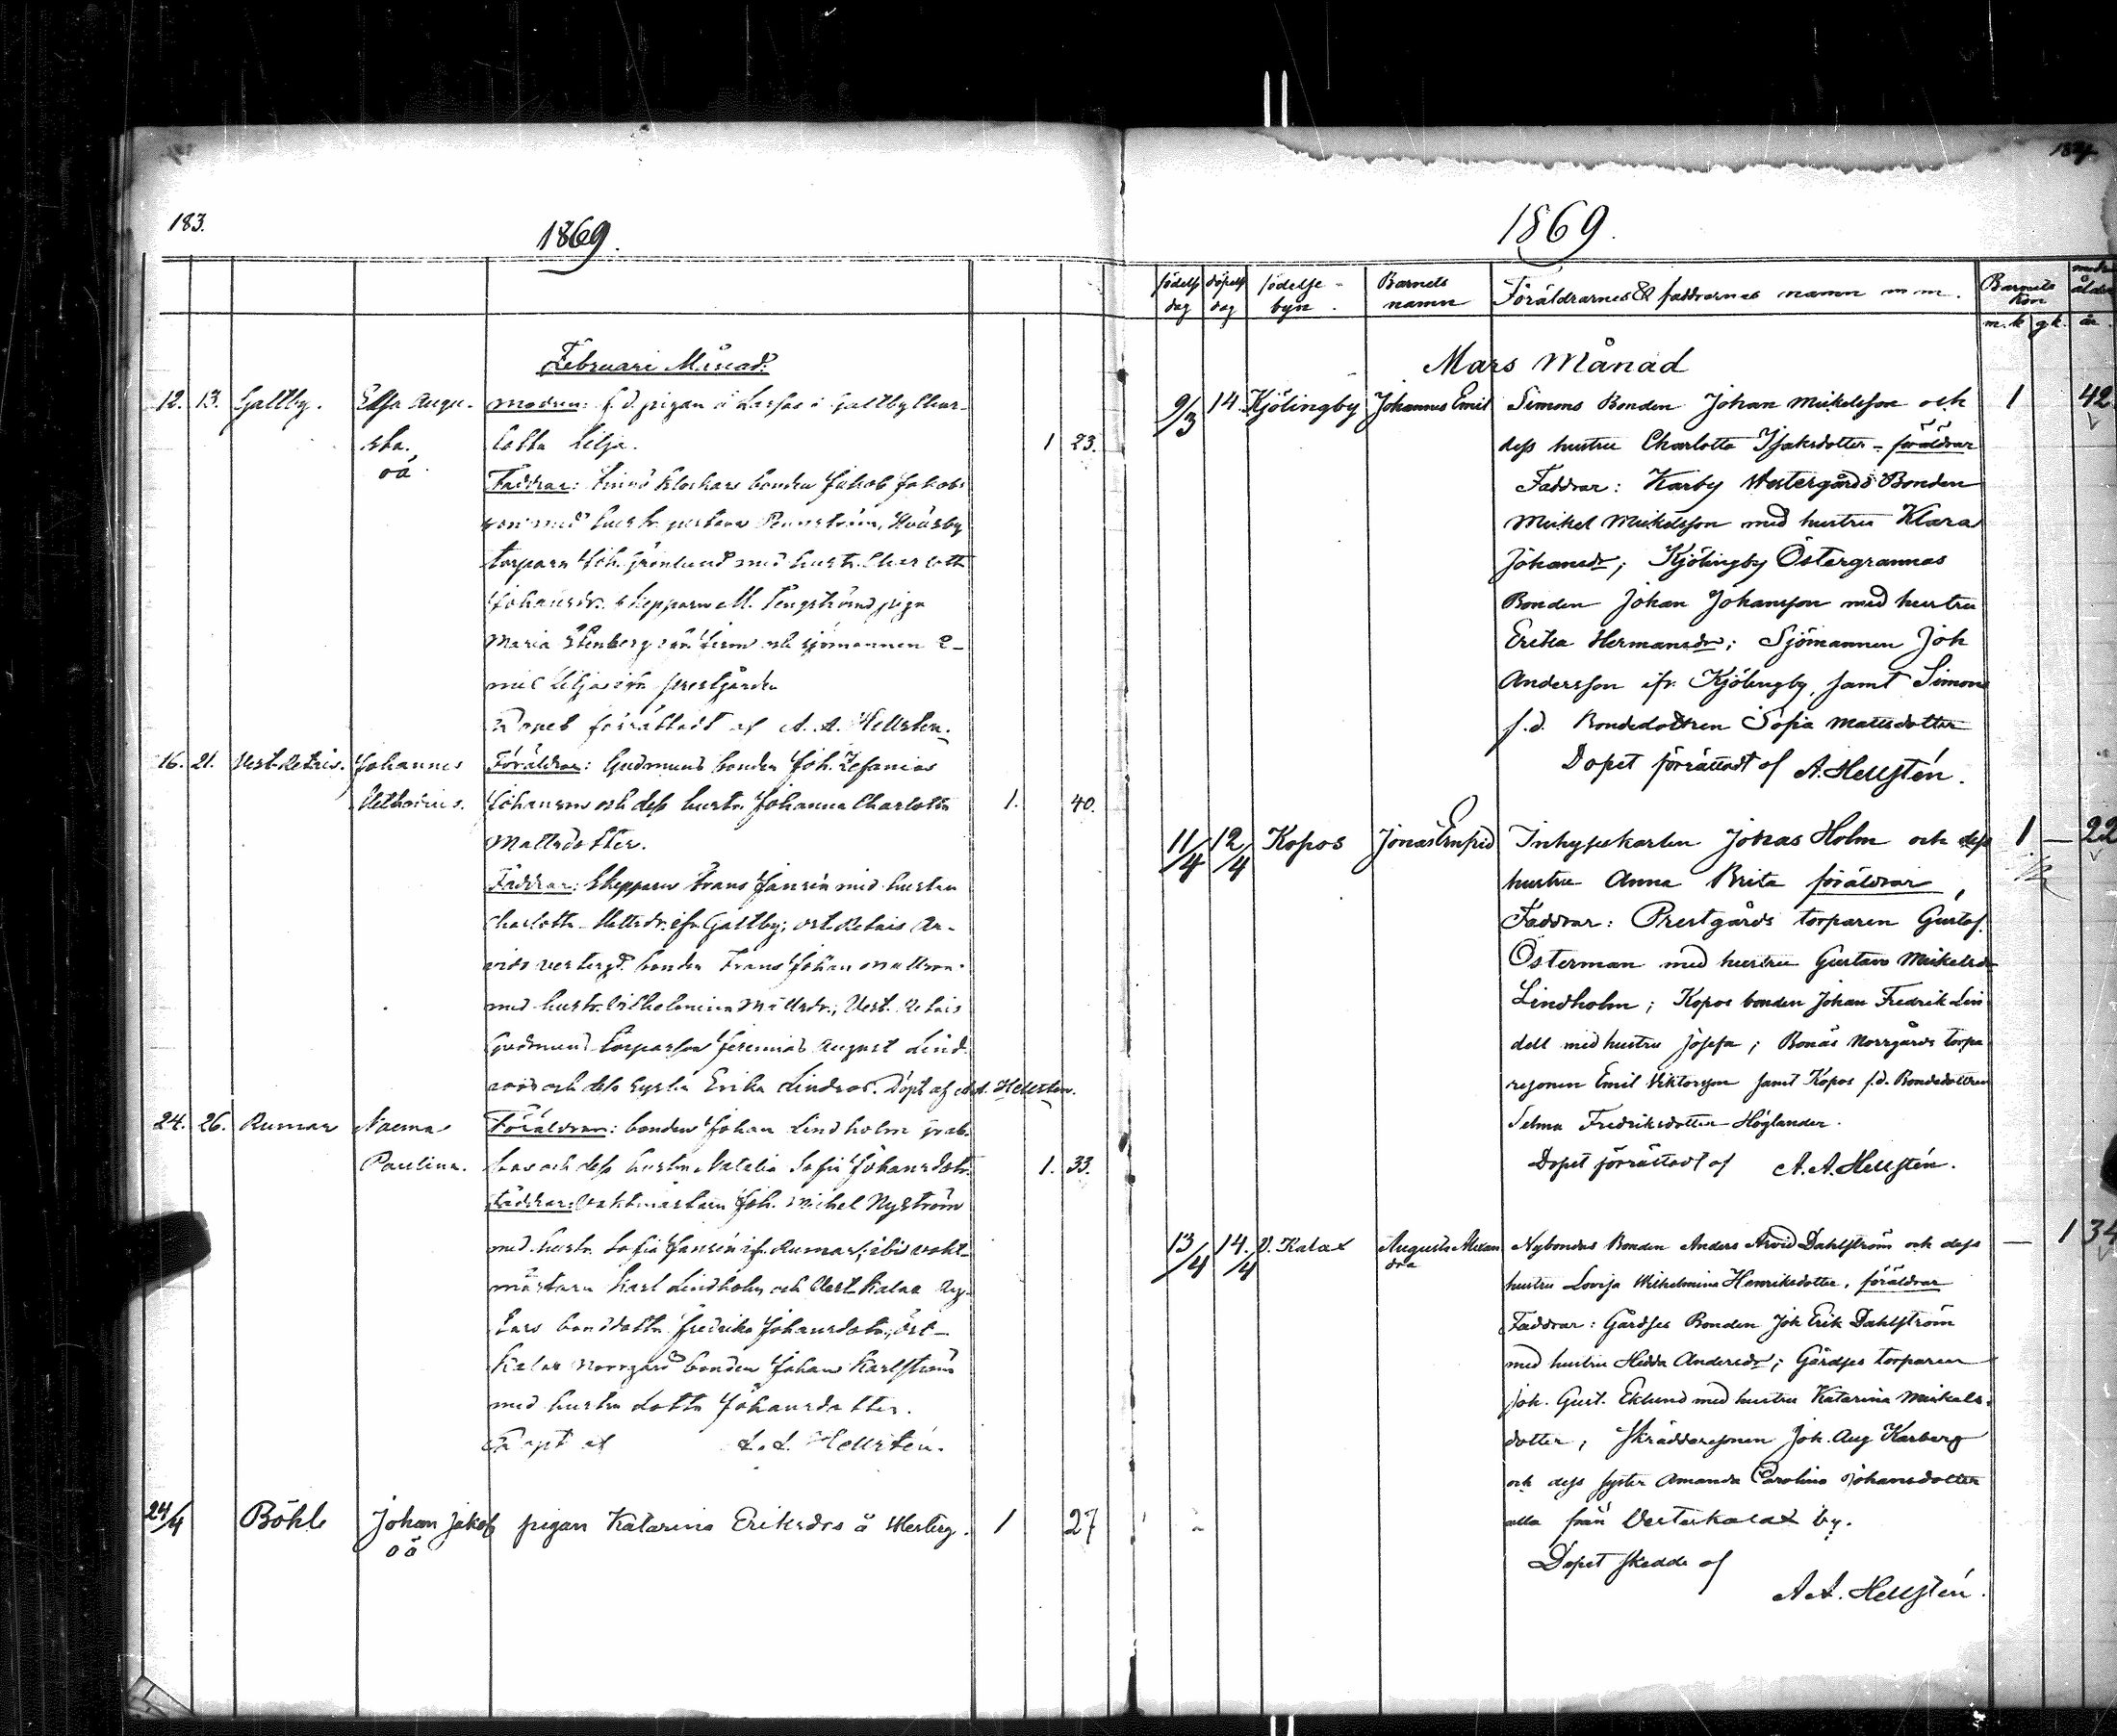 183.
1869.
Februari Månad.
12. 13. Galtby. Elsa Augu- modren: f.d. pigan å Larsas i Galtby Char-
sta. lotta Lilja. 1 23.
oä
Faddrar: bonden Jakob Jakobs-
son med hustr.
torparn Joh. Grönlund med hustr. Charlotta
Johansdr. skepparn M. Tengström pign
Maria Stenberg och sjömannen E-
mil Lilja ifr. prestgården
Dopet förrättadt af A. A. Hellsten.
16. 21. Vest. Retais. Johannes Föräldrar: Gudmunds bonden Joh. Zefanias
Johansson och dess hustr. Johanna Charlotta 1. 40.
Mattsdotter.
Faddrar: Skepparn Frans Jansén med hustru
Charlotta Mattsdr. ifr. Galtby; ost. Retais Ar-
vids vestergds bonden Frans Johan Mattsson
med hustr. Vilhelmina Mattsdr.; Vest. Retais
Gudmunds torparson Jeremias August Lind-
roos och dess syster Erika Lindros. Döpt af A.A. Hellsten.
24. 26. Rumar Naema Föräldrar: bonden Johan Lindholm
Paulina. och dess hustru Natalia Sofia Johansdotr. 1. 33.
Faddrar: Vaktmästarn Joh. Michel Nyström
med hustr. Sofia Jansén ifr. Rumar; ibid vakt-
mästarn Karl Lindholm och Vest. Kalax Ny-
bonddottr. Fredrika Johansdotr; öst-
Kalax Norrgårds bonden Johan Karlström
med hustru Lotta Johansdotter.
Döpt af A. A. Hellstén.
24/4 Böhle Johan Jakob pigan Katarina Eriksdr å Westerg. 1 27
oä
184
1869.
födelse dag döpelse dag födelse- byn. Barnets namn Föräldrarnes & faddrarnes namn m m. Barnets kön ålder
m.k g.k. år.
Mars Månad
9/3 14. Kjölingby Johannes Emil Simons Bonden Johan Mickelsson och 1 42
dess hustru Charlotta Isaksdotter - föräldrar
Faddrar: Karby Westergårds Bonden
Mickel Mickelsson med hustru Klara
Johansdr; Kjölingby Östergrannas
Bonden Johan Johansson med hustru
Erika Hermansdr; Sjömannen Joh
Andersson ifr. Kjölingby, samt Simons
f.d. Bondedottren Sofia Mattsdotter
Dopet förrättadt af A. Hellstén.
11/4 12/4 Kopos Jonas Ernfrid Inhyseskarlen Jonas Holm och dess 1 — 22
hustru Anna Brita föräldrar,
Faddrar: Prestgårds torparen Gustaf
Österman med hustru Gustava Mickelsdr
Lindholm; Kopos bonden Johan Fredrik Lin
dell med hustru Josefa; Bonäs Norrgårds torpa
resonen Emil Viktorsson samt Kopos f.d. Bondedottren
Selma Fredriksdotter Höglander.
Dopet förrättadt af A. A. Hellstén.
13/4 14./4 V. Kalax Augusta Alexan Nybondas Bonden Anders Arvid Dahlström och dess — 1 34
dra hustru Lovisa Wilhelmina Henriksdotter, föräldrar
Faddrar: Gårdses Bonden Joh Erik Dahlström
med hustru Hedda Andersdr; Gårdses torparen
Joh. Gust. Eklund med hustru Katarina Mickels-
dotter; Skräddaresonen Joh. Aug Karberg
och dess syster Amanda Carolina Johansdotter
alla från Vesterkalax by.
Dopet skedde af
A A. Hellstén.